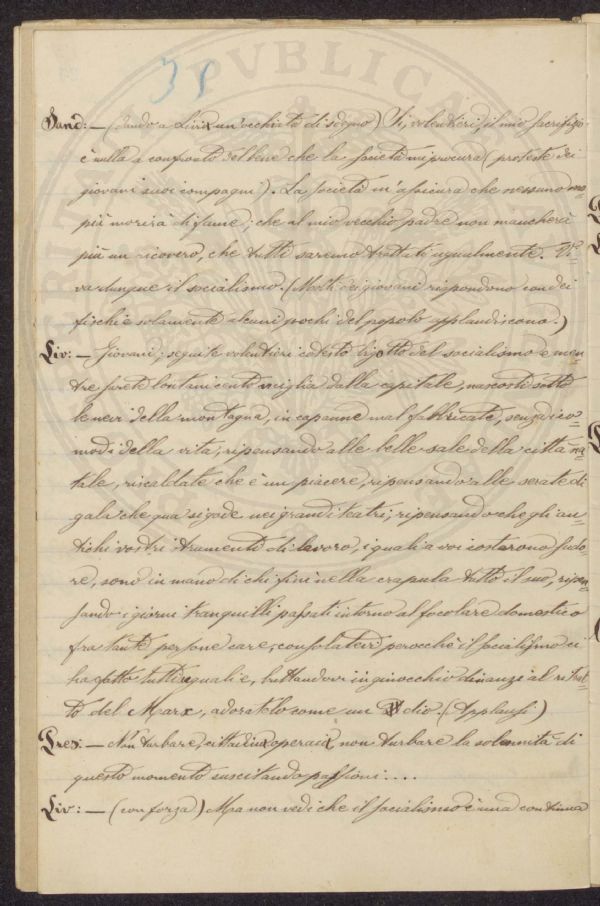 38
Sand: — (dando a Livia un'occhiata di sdegno) Sì, volentieri, il mio sacrifizio
è nulla a confronto del bene che la società mi procura (proteste dei
giovani suoi compagni). La società m'assicura che nessuno mai
più morirà di fame; che al mio vecchio padre non mancherà
più un ricovero, che tutti saremo trattati ugualmente. Vi=
va dunque il socialismo. (Molti dei giovani rispondono con dei
fischi e solamente alcuni pochi del popolo applaudiscono.)
Liv: — Giovani, seguite volentieri cotesto bigotto del socialismo e men=
tre sarete lontani cento miglia dalla capitale, nascosti sotto
le nevi della montagna, in capanne mal fabbricate, senza i co=
modi della vita, ripensando alle belle sale della città na=
tale, riscaldate che è un piacere, ripensando alle serate di
gala che qua si gode nei grandi teatri; ripensando che gli an=
tichi vostri istrumenti di lavoro, i quali a voi costarono sudo=
re, sono in mano di chi finì nella crapula tutto il suo, ripen=
sando i giorni tranquilli passati intorno al focolare domestico
fra tante persone care, consolatevi perocchè il socialismo ci
ha fatto tutti uguali e, buttandovi in ginocchio dinanzi al ritrat=
to del Marx, adoratelo come un dio. (Applausi)
Pres: — Non turbare, cittadina operaia, non turbare la solennità di
questo momento suscitando passioni....
Liv: — (con forza) Ma non vedi che il socialismo è una continua